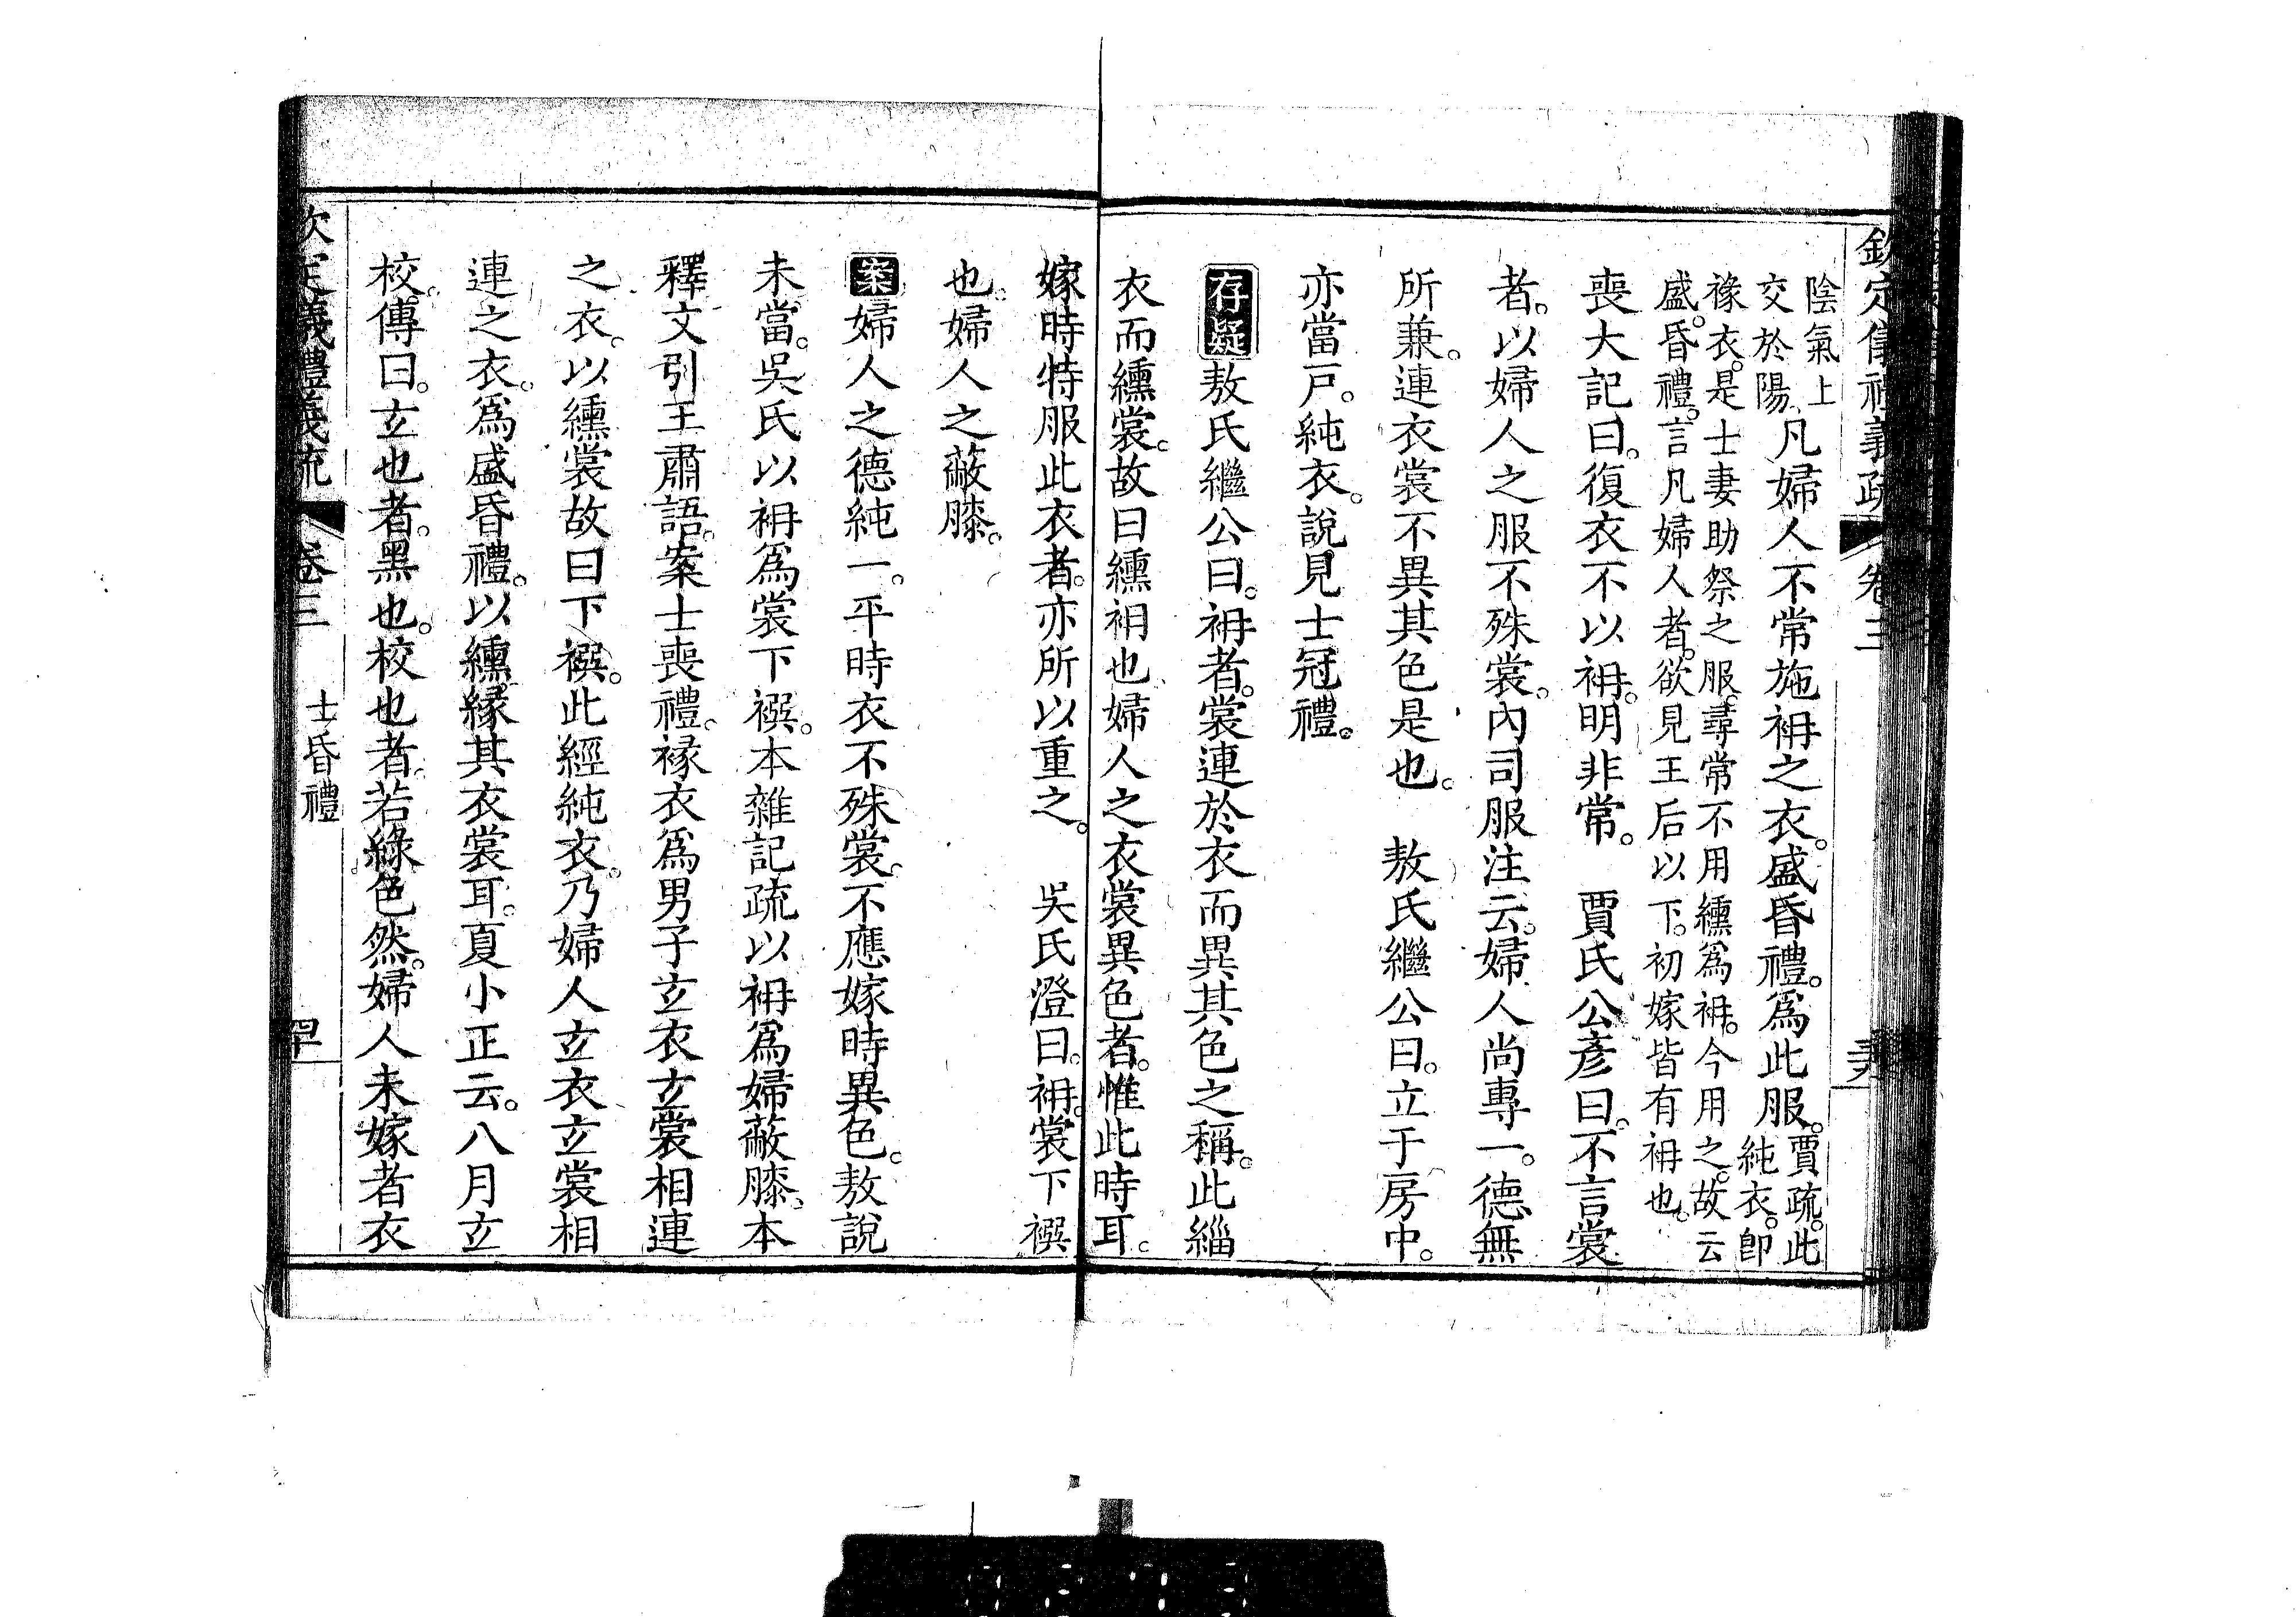 欽定儀禮義疏 卷三
陰氣上
交於陽
凡婦人不常施袡之衣。盛昏禮。爲此服。
賈疏。此
純衣。卽
褖衣。是士妻助祭之服。尋常不用纁爲袡。今用之。故云
盛昏禮。言凡婦人者。欲見王后以下。初嫁皆有袡也。
喪大記曰。復衣不以袡。明非常。 賈氏公彥曰。不言裳
者。以婦人之服不殊裳。內司服注云。婦人尚專一。德無
所兼。連衣裳不異其色是也。 敖氏繼公曰。立于房中。
亦當戶。純衣。說見士冠禮。
存疑敖氏繼公曰。袡者。裳連於衣而異其色之稱。此緇
衣而纁裳。故曰纁袡也婦人之衣裳異色者。惟此時耳。
嫁時特服此衣者。亦所以重之。 吳氏澄曰。袡。裳下襈
也。婦人之蔽膝。
案婦人之德純一。平時衣不殊裳。不應嫁時異色。敖說
未當。吳氏以袡爲裳下襈。本雜記疏以袡爲婦蔽膝。本
釋文引王肅語。案士喪禮。褖衣爲男子玄衣玄裳相連
之衣。以纁裳故曰下襈。此經純衣。乃婦人玄衣玄裳相
連之衣。爲盛昏禮。以纁緣其衣裳耳。夏小正云。八月玄
校。傳曰。玄也者。黑也。校也者。若綠色然。婦人未嫁者衣
欽定儀禮義疏 卷三 士昏禮 罕